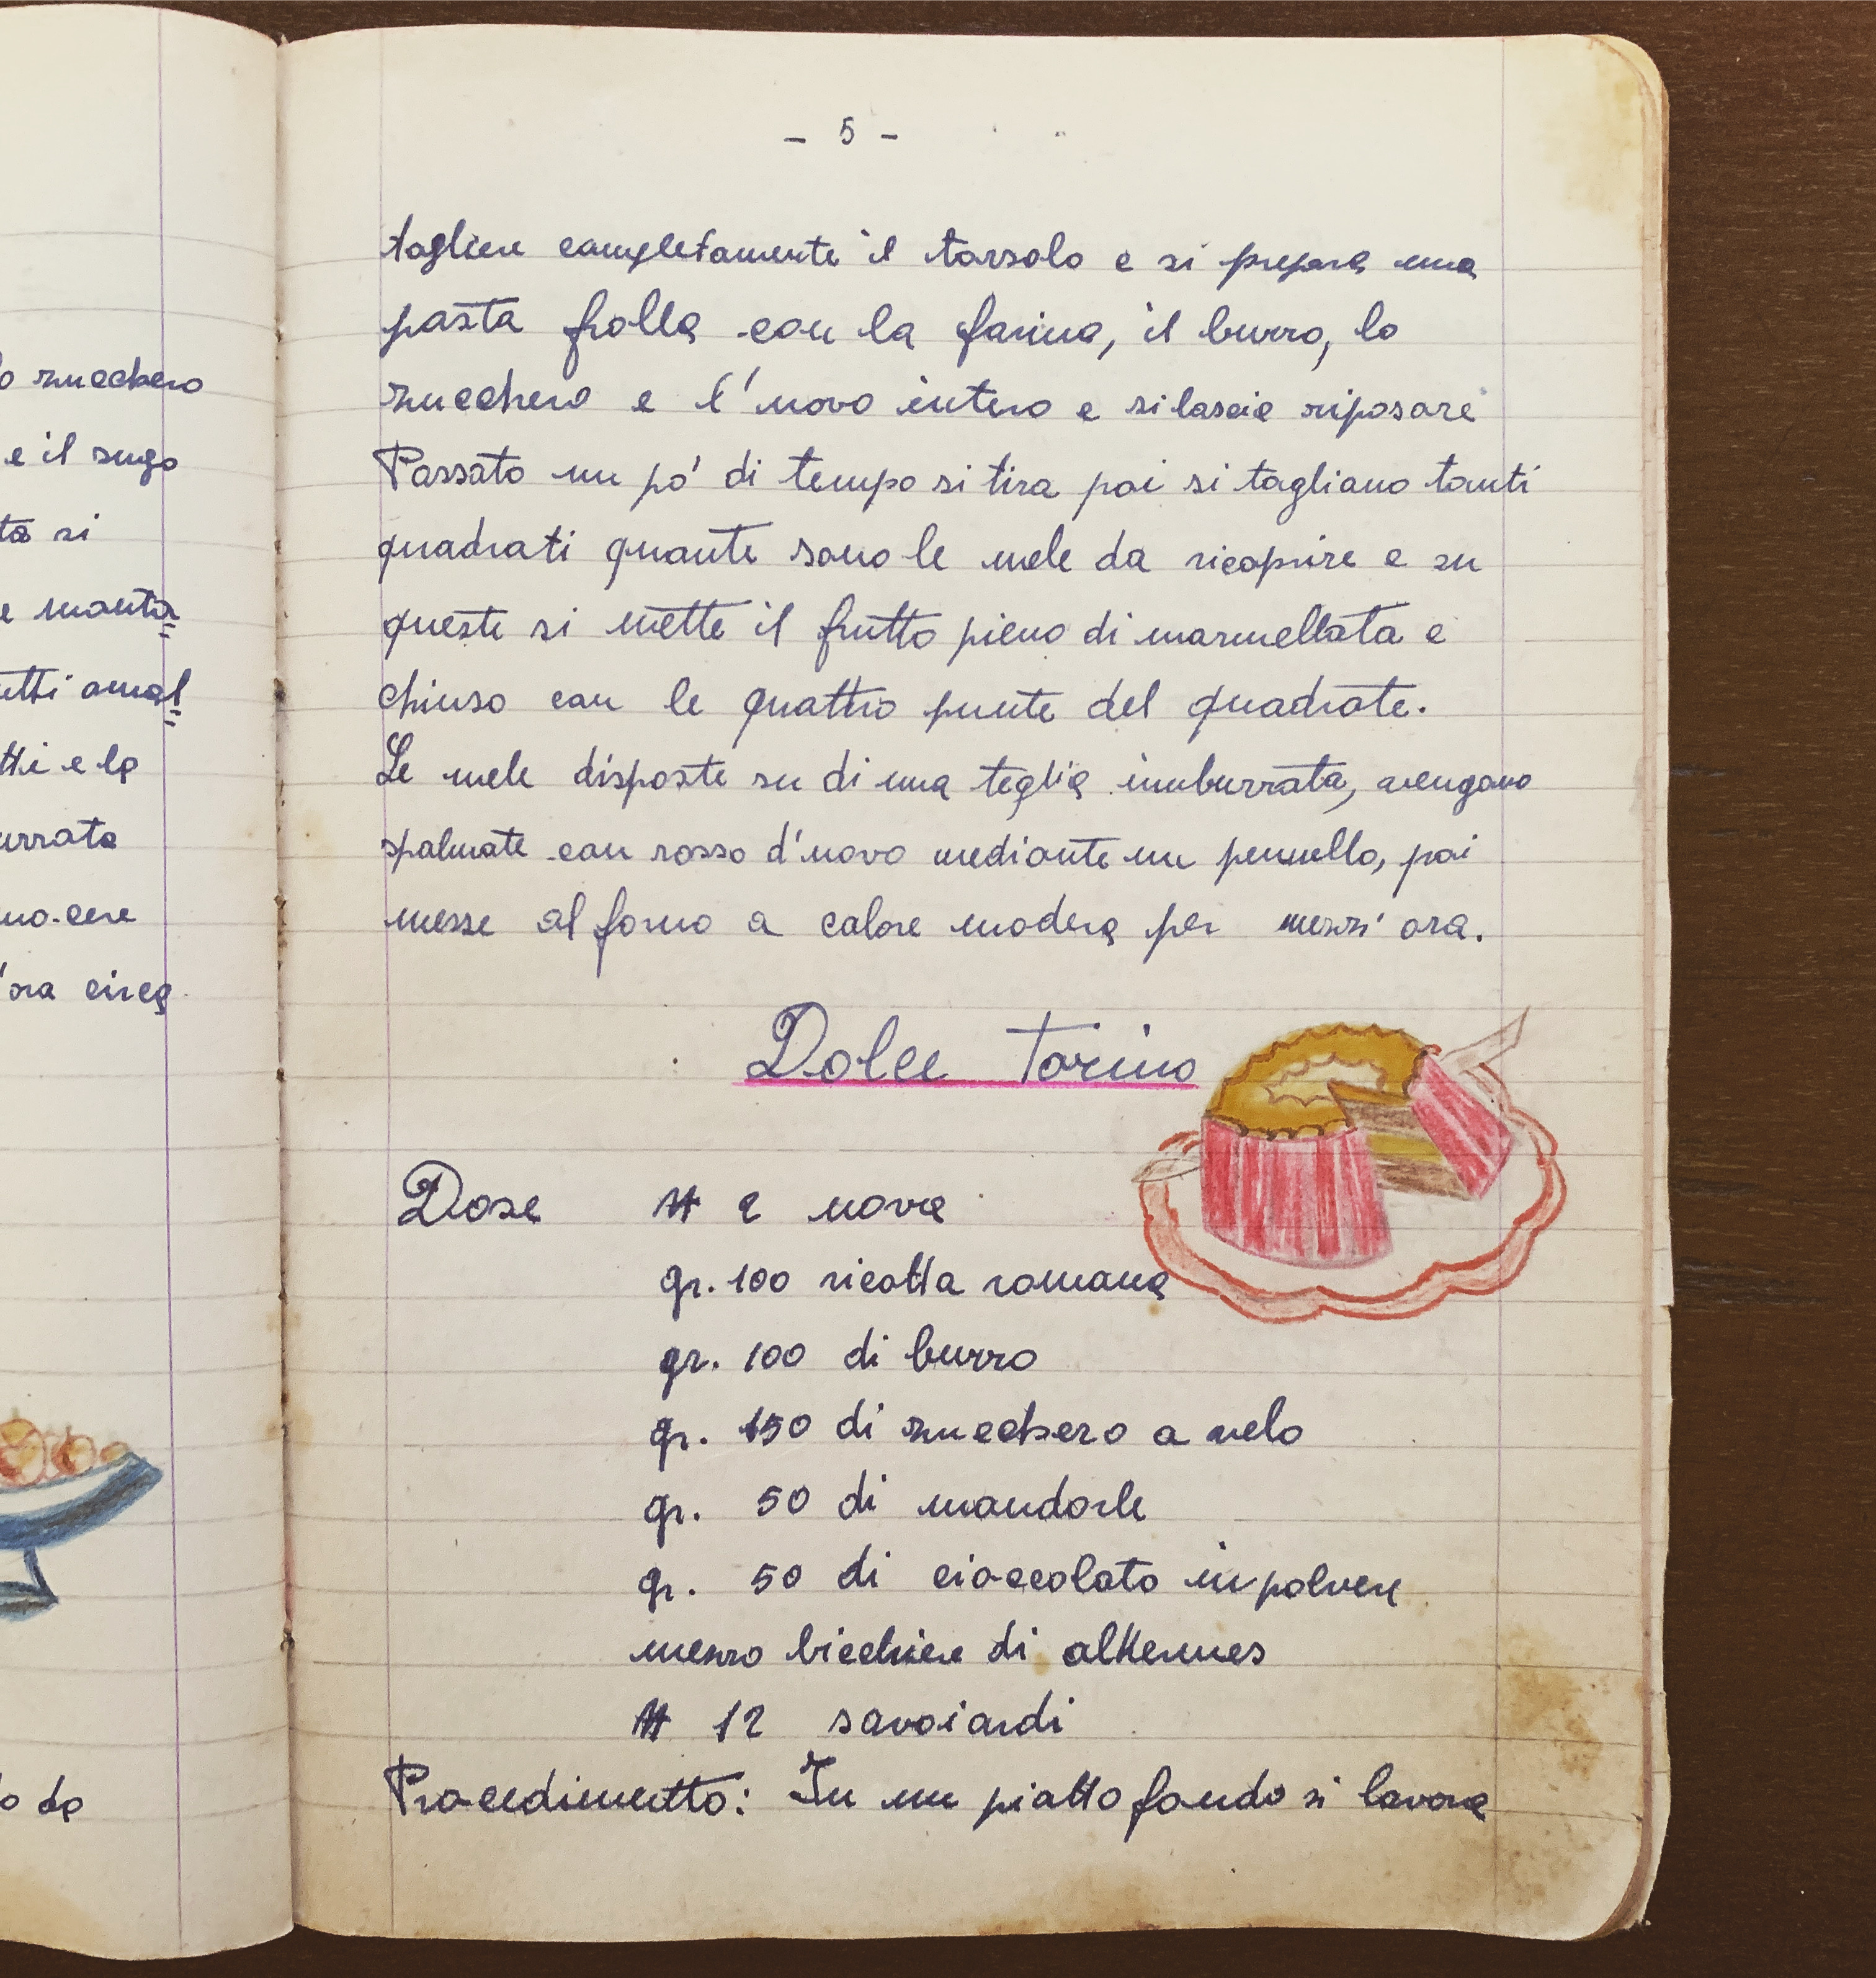 o zucchero
e il sugo
ta si
e manta
utti amal
tti e la
urrata
no-cere
'ora circa
o da
- 5 -
togliere completamente il torsolo e si prepara una
pasta frolla con la farina, il burro, lo
zucchero e l'uovo intero e si lascia riposare
Passato un pò di tempo si tira poi si tagliano tanti
quadrati quante sono le mele da ricoprire e su
queste si mette il frutto pieno di marmellata e
chiuso con le quattro punte del quadrato.
Le mele disposte su di una teglia imburrata, vengono
spalmate con rosso d'uovo mediante un pennello, poi
messe al forno a calore modera per mezz'ora.
Dolce Torino
Dose # 2 uova
gr. 100 ricotta romana
gr. 100 di burro
gr. 150 di zucchero a velo
gr. 50 di mandorle
gr. 50 di cioccolato in polvere
mezzo bicchiere di alkermes
# 12 savoiardi
Procedimento: In un piatto fondo si lavora